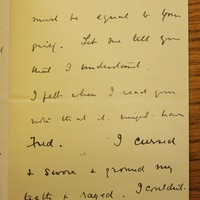 must be equal to your
grief. Let me tell you
that I understand.
I felt when I read your
note that it might have
Fred. I cursed
& swore & ground my
teeth & raged. I couldn't